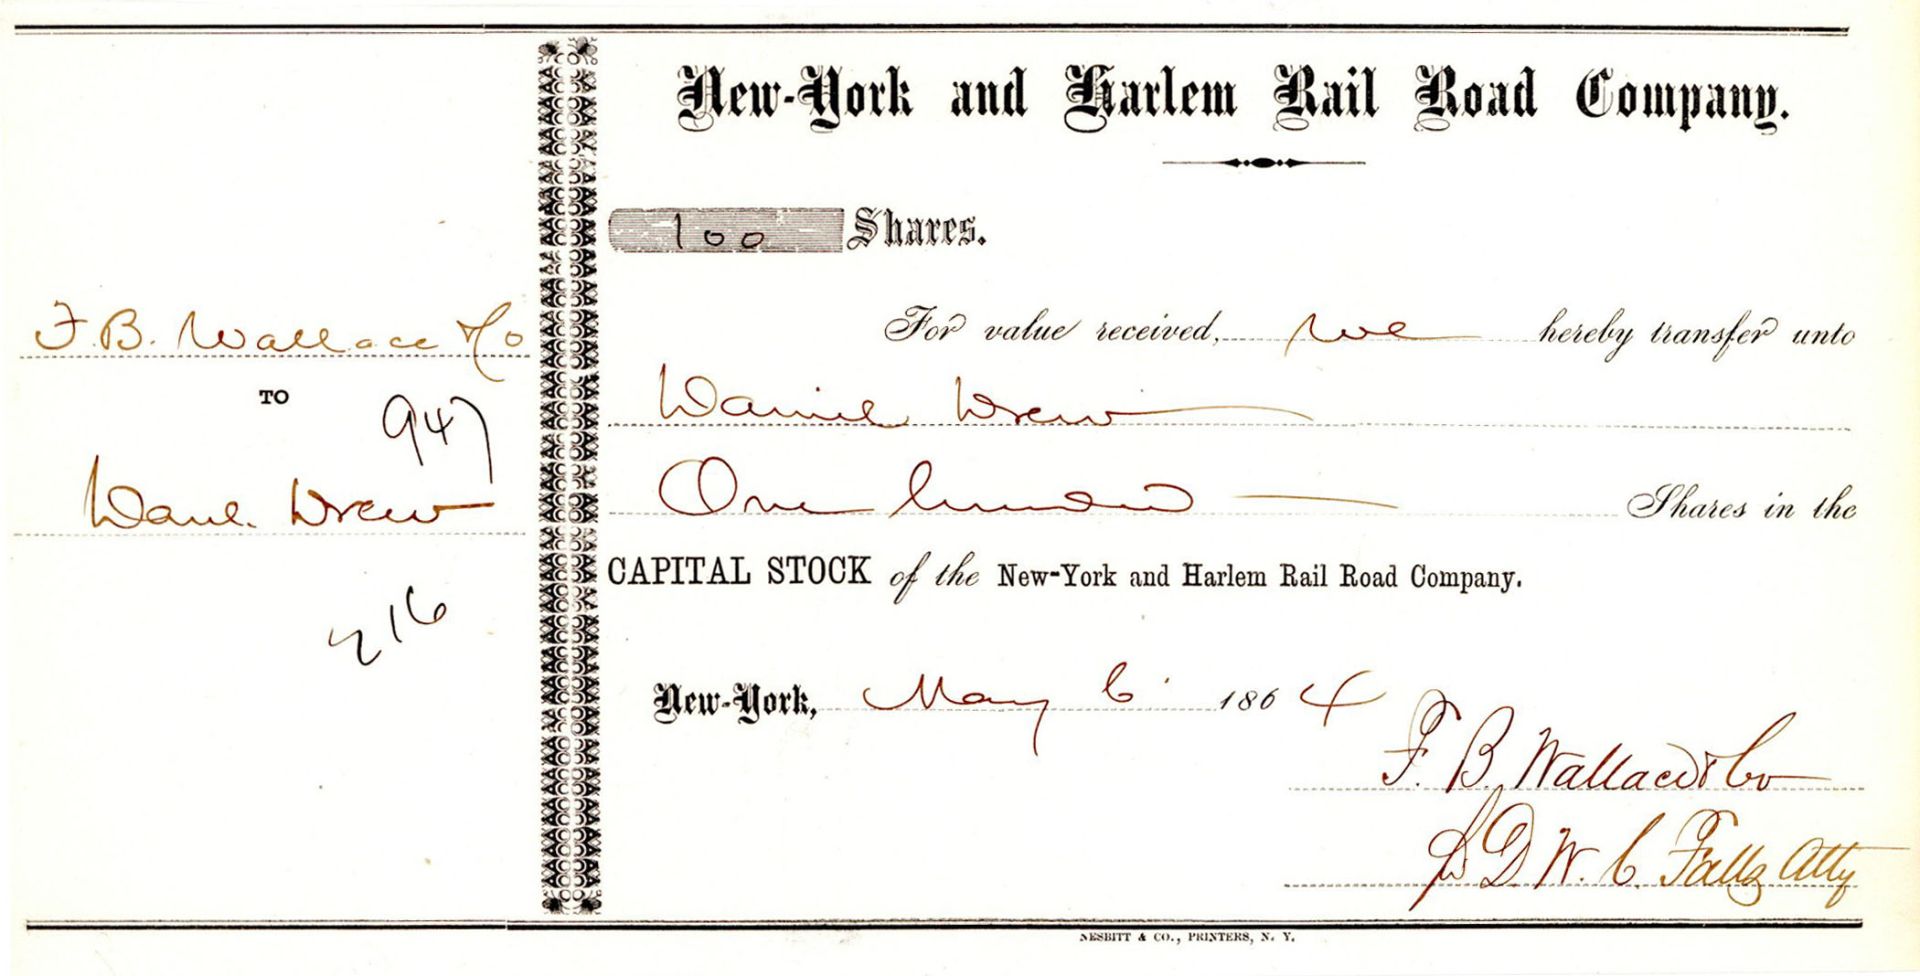 New-York and Harlem Rail Road Company.
100 Shares.
For value received, we hereby transfer unto
Daniel Drew
One hundred Shares in the
CAPITAL STOCK of the New-York and Harlem Rail Road Company.
New-York, May 6 1864
F. B. Wallace & Co
D. W. C. Falls Atty
F. B. Wallace & Co
TO
947
Danl. Drew
216
NESBITT & CO., PRINTERS, N. Y.